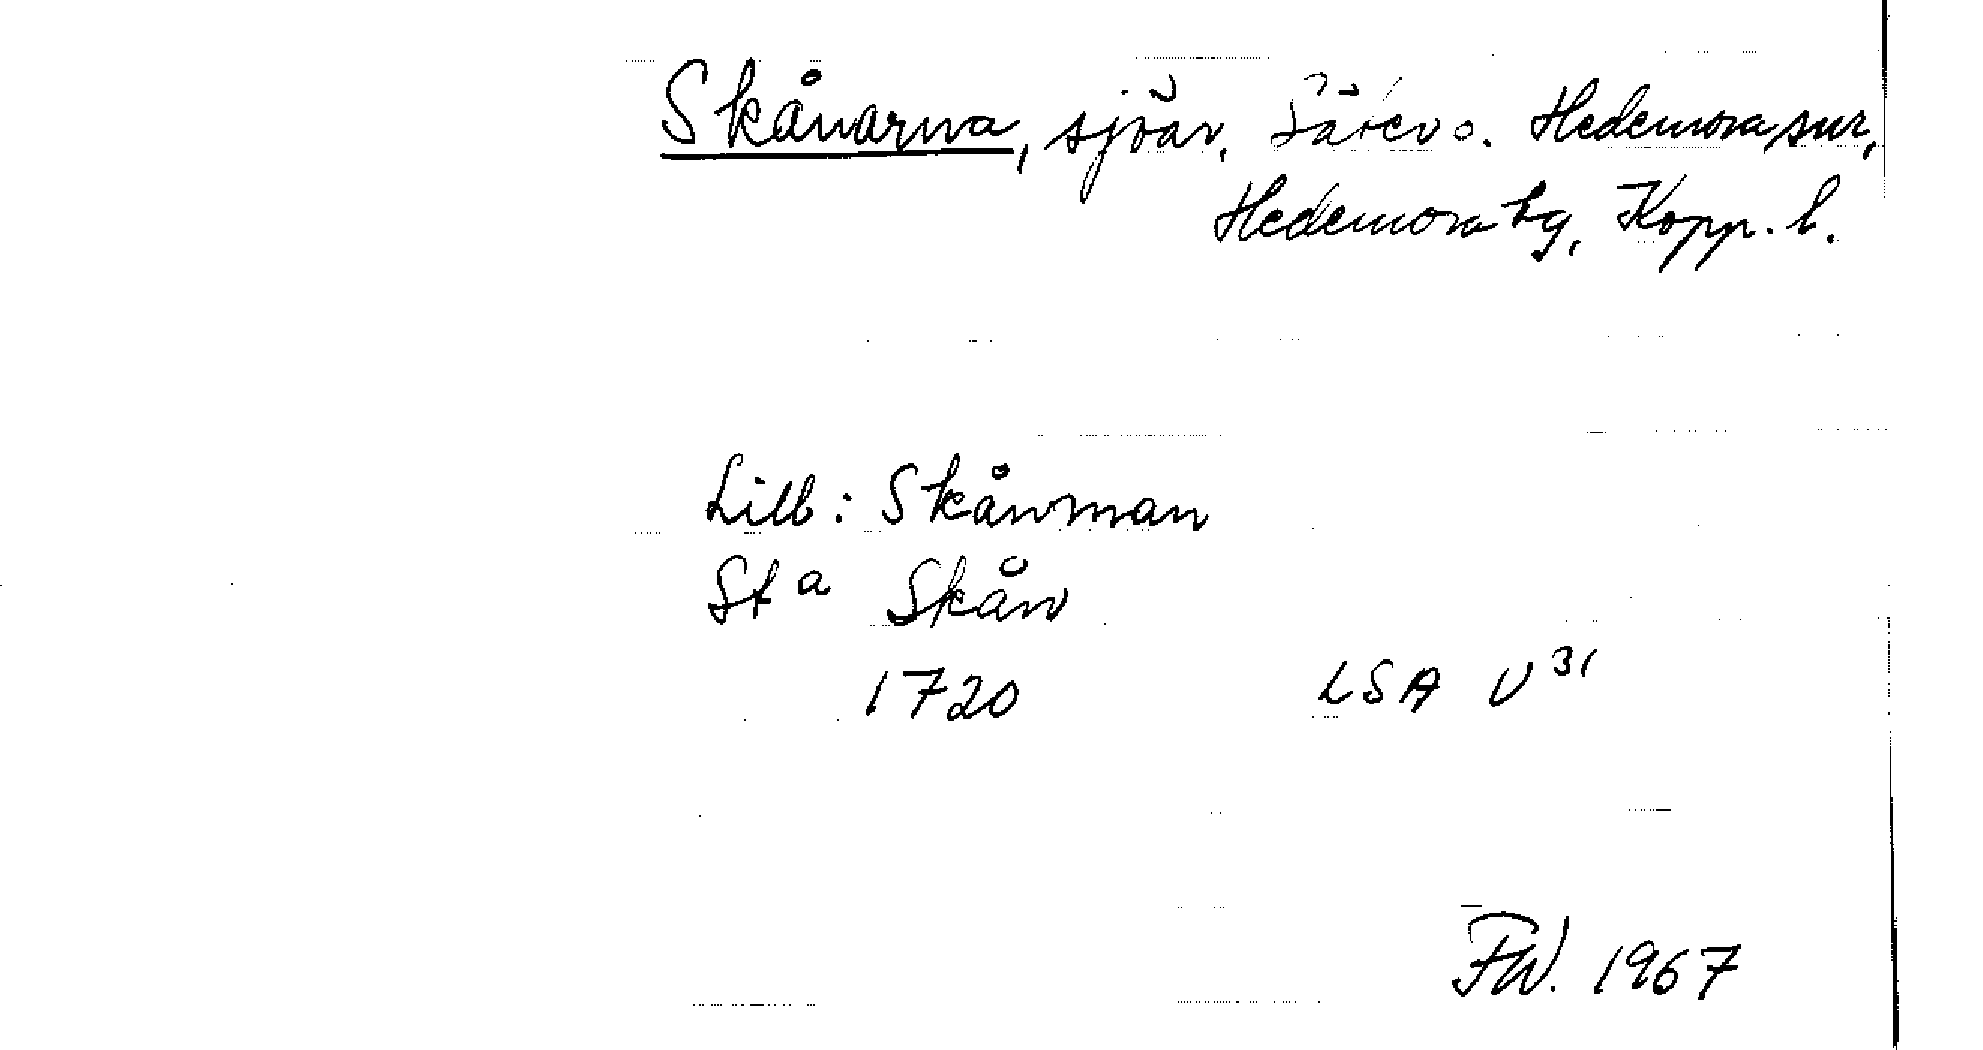 Skånarna, sjöar, Säter o. Hedemora snr,
Hedemora tg, Kopp. l.
Lill: Skånman
St a Skån
1720 LSA U 31
FW. 1967